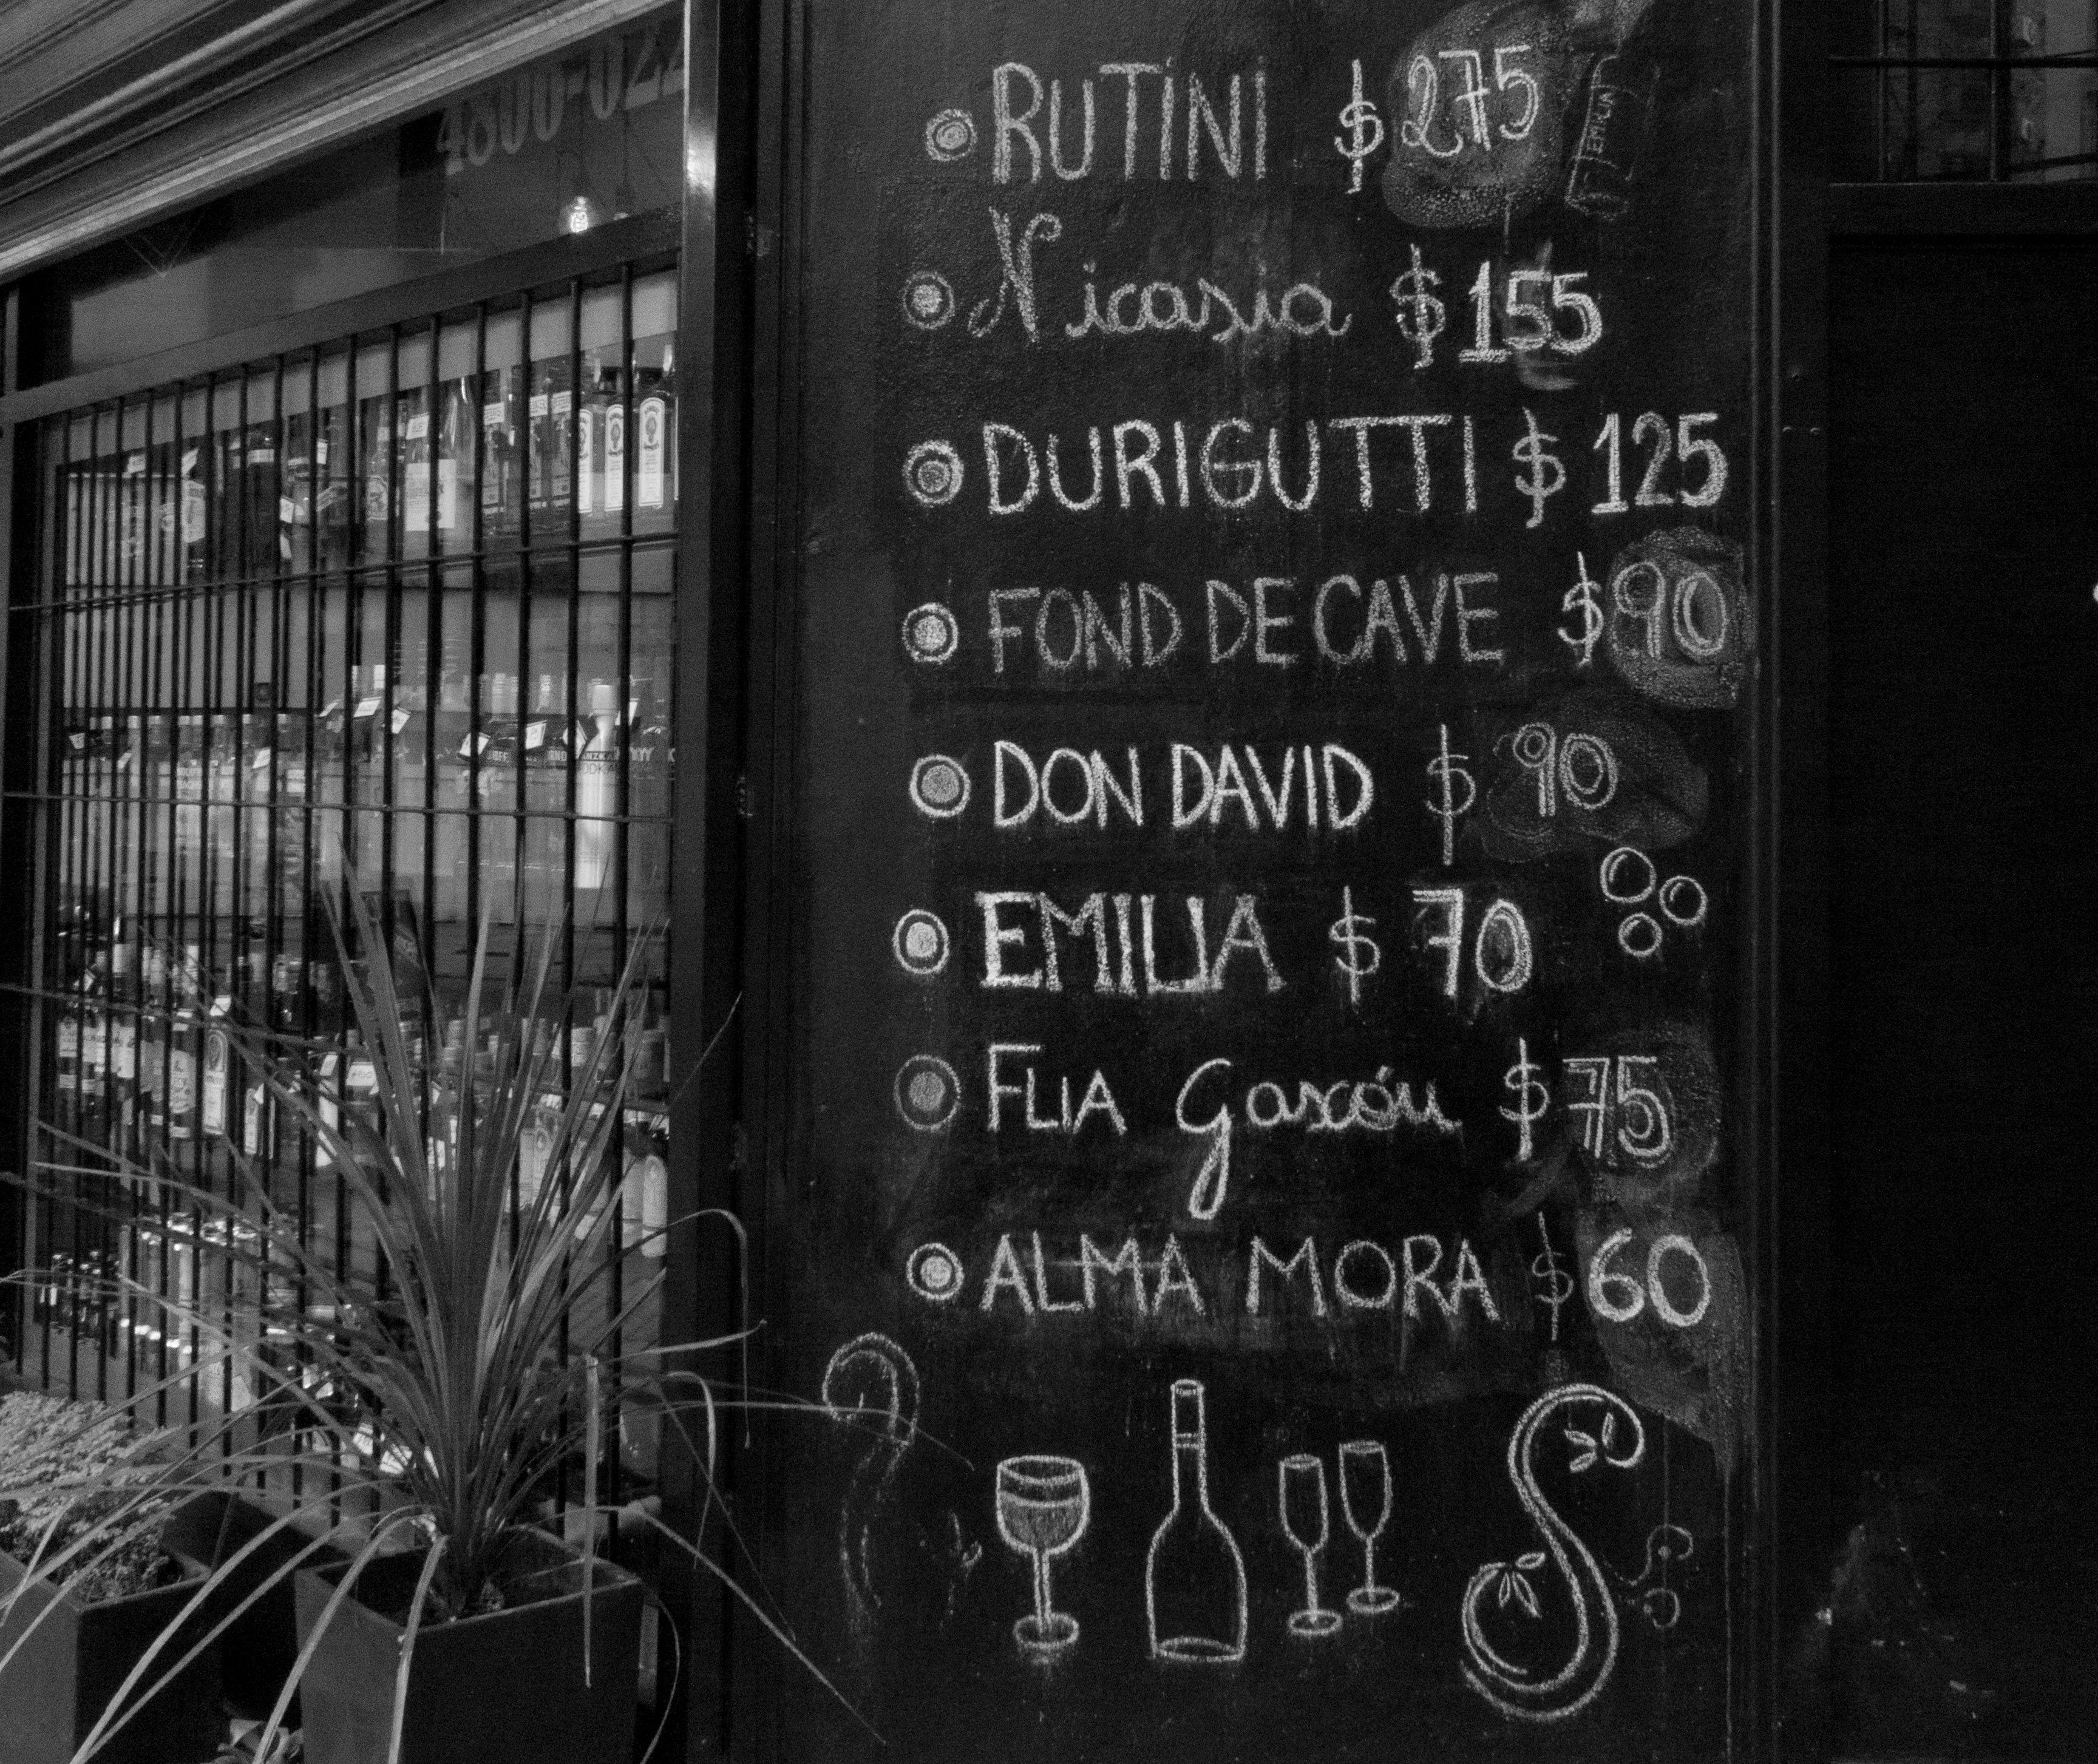 4800-022
RUTINI $275
Nicasia $155
DURIGUTTI $125
FOND DE CAVE $90
DON DAVID $90
EMILIA $70
FLIA Gascón $75
ALMA MORA $60